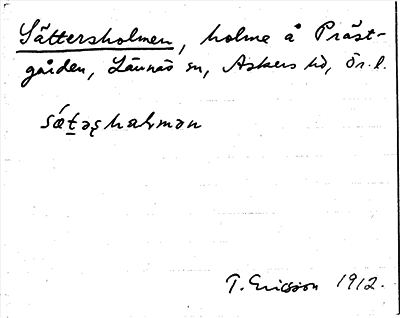 Sättersholmen, holme å Präst-
gården, Lännäs sn, Askers hd, Ör. l.
sǽt̠əʂhaḷmən
T. Ericsson 1912.